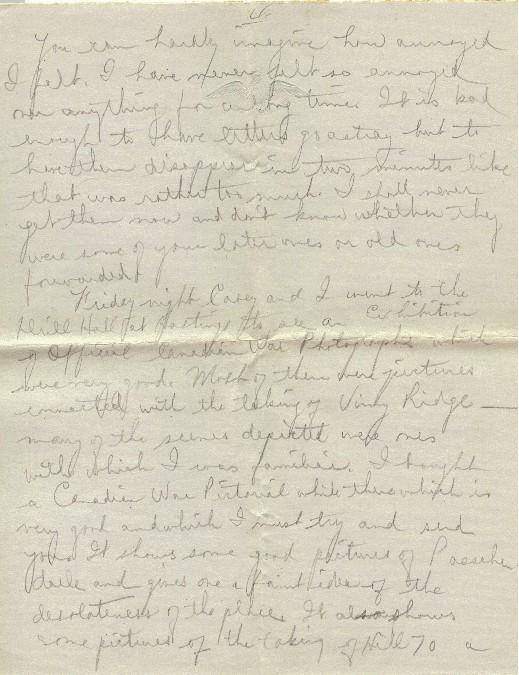 6.
You can hardly imagine how annoyed
I felt. I have never felt so annoyed
over anything for a long time. It is bad
enough to have letters go astray but to
have them disappear in two minutes like
that was rather too much. I shall never
get them now and don't know whether they
were some of your later ones or old ones
forwarded.
Friday night Casey and I went to the
Drill Hall at Hastings to see an Exhibition
of Official Canadian War Photographs which
were very good. Most of them were pictures
connected with the taking of Vimy Ridge —
many of the scenes depicted were ones
with which I was familiar. I bought
a Canadian War Pictorial while there which is
very good and which I must try and send
you. It shows some good pictures of Passchen-
daele and gives one a faint idea of the
desolateness of the place. It also shows
some pictures of the taking of Hill 70 a